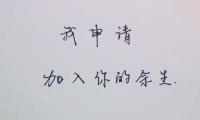 我申请
加入你的余生.